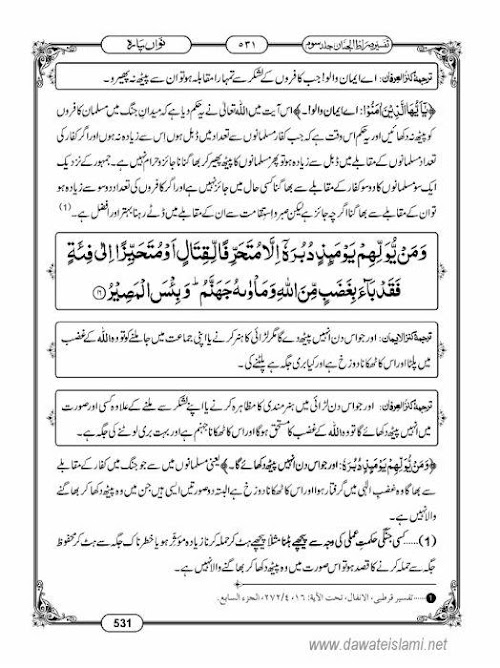 تفسیر صراط الجنان جلد سوم
۵۳۱
نواں پارہ
ترجمۂ کنزُالعِرفان: اے ایمان والو! جب کافروں کے لشکر سے تمہارا مقابلہ ہو تو ان سے پیٹھ نہ پھیرو۔
﴿یٰۤاَیُّهَا الَّذِیْنَ اٰمَنُوْا: اے ایمان والو!۔﴾ اس آیت میں اللہ تعالیٰ نے یہ حکم دیا ہے کہ میدانِ جنگ میں مسلمان کافروں
کو پیٹھ نہ دکھائیں اور یہ حکم اس وقت ہے کہ جب کفار مسلمانوں سے تعداد میں ڈبل ہوں اس سے زیادہ نہ ہوں اور اگر کفار کی
تعداد مسلمانوں کے مقابلے میں ڈبل سے زیادہ ہو تو پھر مسلمانوں کا پیٹھ پھیر کر بھاگنا ناجائز و حرام نہیں ہے۔ جمہور کے نزدیک
ایک سو مسلمانوں کا دو سو کفار کے مقابلے سے بھاگنا کسی حال میں جائز نہیں ہے اور اگر کافروں کی تعداد دو سو سے زیادہ ہو
تو ان کے مقابلے سے بھاگنا اگرچہ جائز ہے لیکن صبر و استقامت سے ان کے مقابلے میں ڈٹے رہنا بہتر اور افضل ہے۔ (1)
وَ مَنْ یُّوَلِّهِمْ یَوْمَىٕذٍ دُبُرَهٗۤ اِلَّا مُتَحَرِّفًا لِّقِتَالٍ اَوْ مُتَحَیِّزًا اِلٰى فِئَةٍ
فَقَدْ بَآءَ بِغَضَبٍ مِّنَ اللّٰهِ وَ مَاْوٰىهُ جَهَنَّمُؕ-وَ بِئْسَ الْمَصِیْرُ ﴿۱۶﴾
ترجمۂ کنزالایمان: اور جو اس دن انہیں پیٹھ دے گا مگر لڑائی کا ہنر کرنے یا اپنی جماعت میں جا ملنے کو تو وہ اللہ کے غضب
میں پلٹا اور اس کا ٹھکانا دوزخ ہے اور کیا بری جگہ ہے پلٹنے کی۔
ترجمۂ کنزُالعِرفان: اور جو اس دن لڑائی میں ہنر مندی کا مظاہرہ کرنے یا اپنے لشکر سے ملنے کے علاوہ کسی اور صورت
میں انہیں پیٹھ دکھائے گا تو وہ اللہ کے غضب کا مستحق ہوگا اور اس کا ٹھکانا جہنم ہے اور بہت بری لوٹنے کی جگہ ہے۔
﴿وَ مَنْ یُّوَلِّهِمْ یَوْمَىٕذٍ دُبُرَهٗ: اور جو اس دن انہیں پیٹھ دکھائے گا۔﴾ یعنی مسلمانوں میں سے جو جنگ میں کفار کے مقابلے
سے بھاگا وہ غضبِ الٰہی میں گرفتار ہوا اور اس کا ٹھکانا دوزخ ہے البتہ دو صورتیں ایسی ہیں جن میں وہ پیٹھ دکھا کر بھاگنے
والا نہیں ہے۔
(1)..... کسی جنگی حکمتِ عملی کی وجہ سے پیچھے ہٹنا مثلاً پیچھے ہٹ کر حملہ کرنا زیادہ مؤثر ہو یا خطرناک جگہ سے ہٹ کر محفوظ
جگہ سے حملہ کرنے کا قصد ہو تو اس صورت میں وہ پیٹھ دکھا کر بھاگنے والا نہیں ہے۔
1 ..... تفسیر قرطبی، الانفال، تحت الآیۃ: ۱۶، ۴/۲۷۲، الجزء السابع.
531
www.dawateislami.net